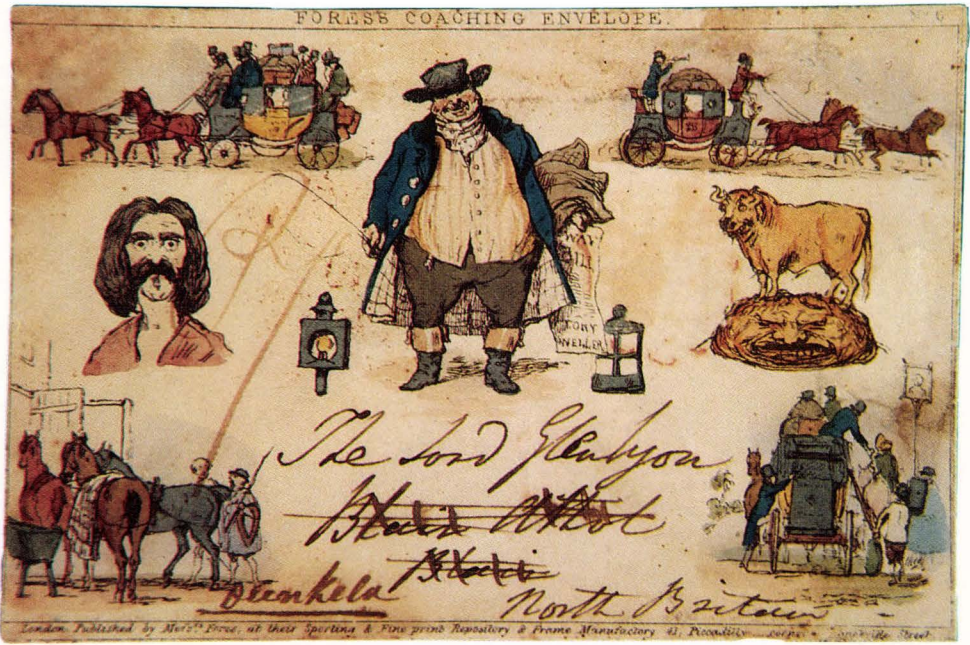 FORES'S COACHING ENVELOPE.
Nº 6
28
TONY
WELLER
The Lord Glenlyon
Blair Athol
Blair
Dunkeld
North Britain
London. Published by Messrs. Fores, at their Sporting & Fine print Repository & Frame Manufactory 41, Piccadilly Sackville Street